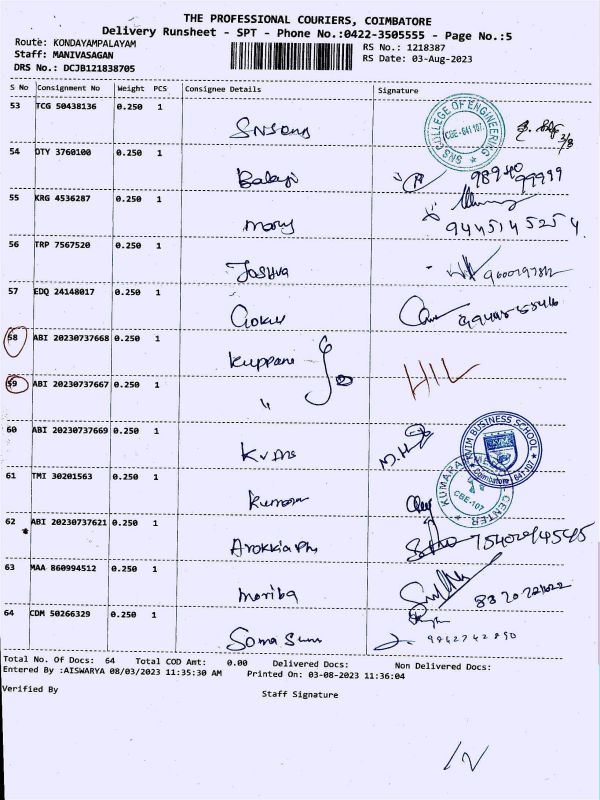 THE PROFESSIONAL COURIERS, COIMBATORE
Delivery Runsheet - SPT - Phone No.:0422-3505555 - Page No.:5
Route: KONDAYAMPALAYAM RS No.: 1218387
Staff: MANIVASAGAN RS Date: 03-Aug-2023
DRS No.: DCJB121838705
S No Consignment No Weight PCS Consignee Details Signature
53 TCG 50438136 0.250 1
SNS COLLEGE OF ENGINEERING
CBE-641 107
54 DTY 3760100 0.250 1
Balaji
55 KRG 4536287 0.250 1
Mary 9445145254
56 TRP 7567520 0.250 1
Joshva
57 EDQ 24148017 0.250 1
Gokul
58 ABI 20230737668 0.250 1
Kuppano
59 ABI 20230737667 0.250 1
"
60 ABI 20230737669 0.250 1
BUSINESS SCHOOL
Coimbatore 641-107
61 TMI 30201563 0.250 1
Kumaran
KUMARA CENTER
CBE-107
62 ABI 20230737621 0.250 1
*
63 MAA 860994512 0.250 1
64 CDM 50266329 0.250 1
Soma 9862742890
Total No. Of Docs: 64 Total COD Amt: 0.00 Delivered Docs: Non Delivered Docs:
Entered By :AISWARYA 08/03/2023 11:35:30 AM Printed On: 03-08-2023 11:36:04
Verified By Staff Signature